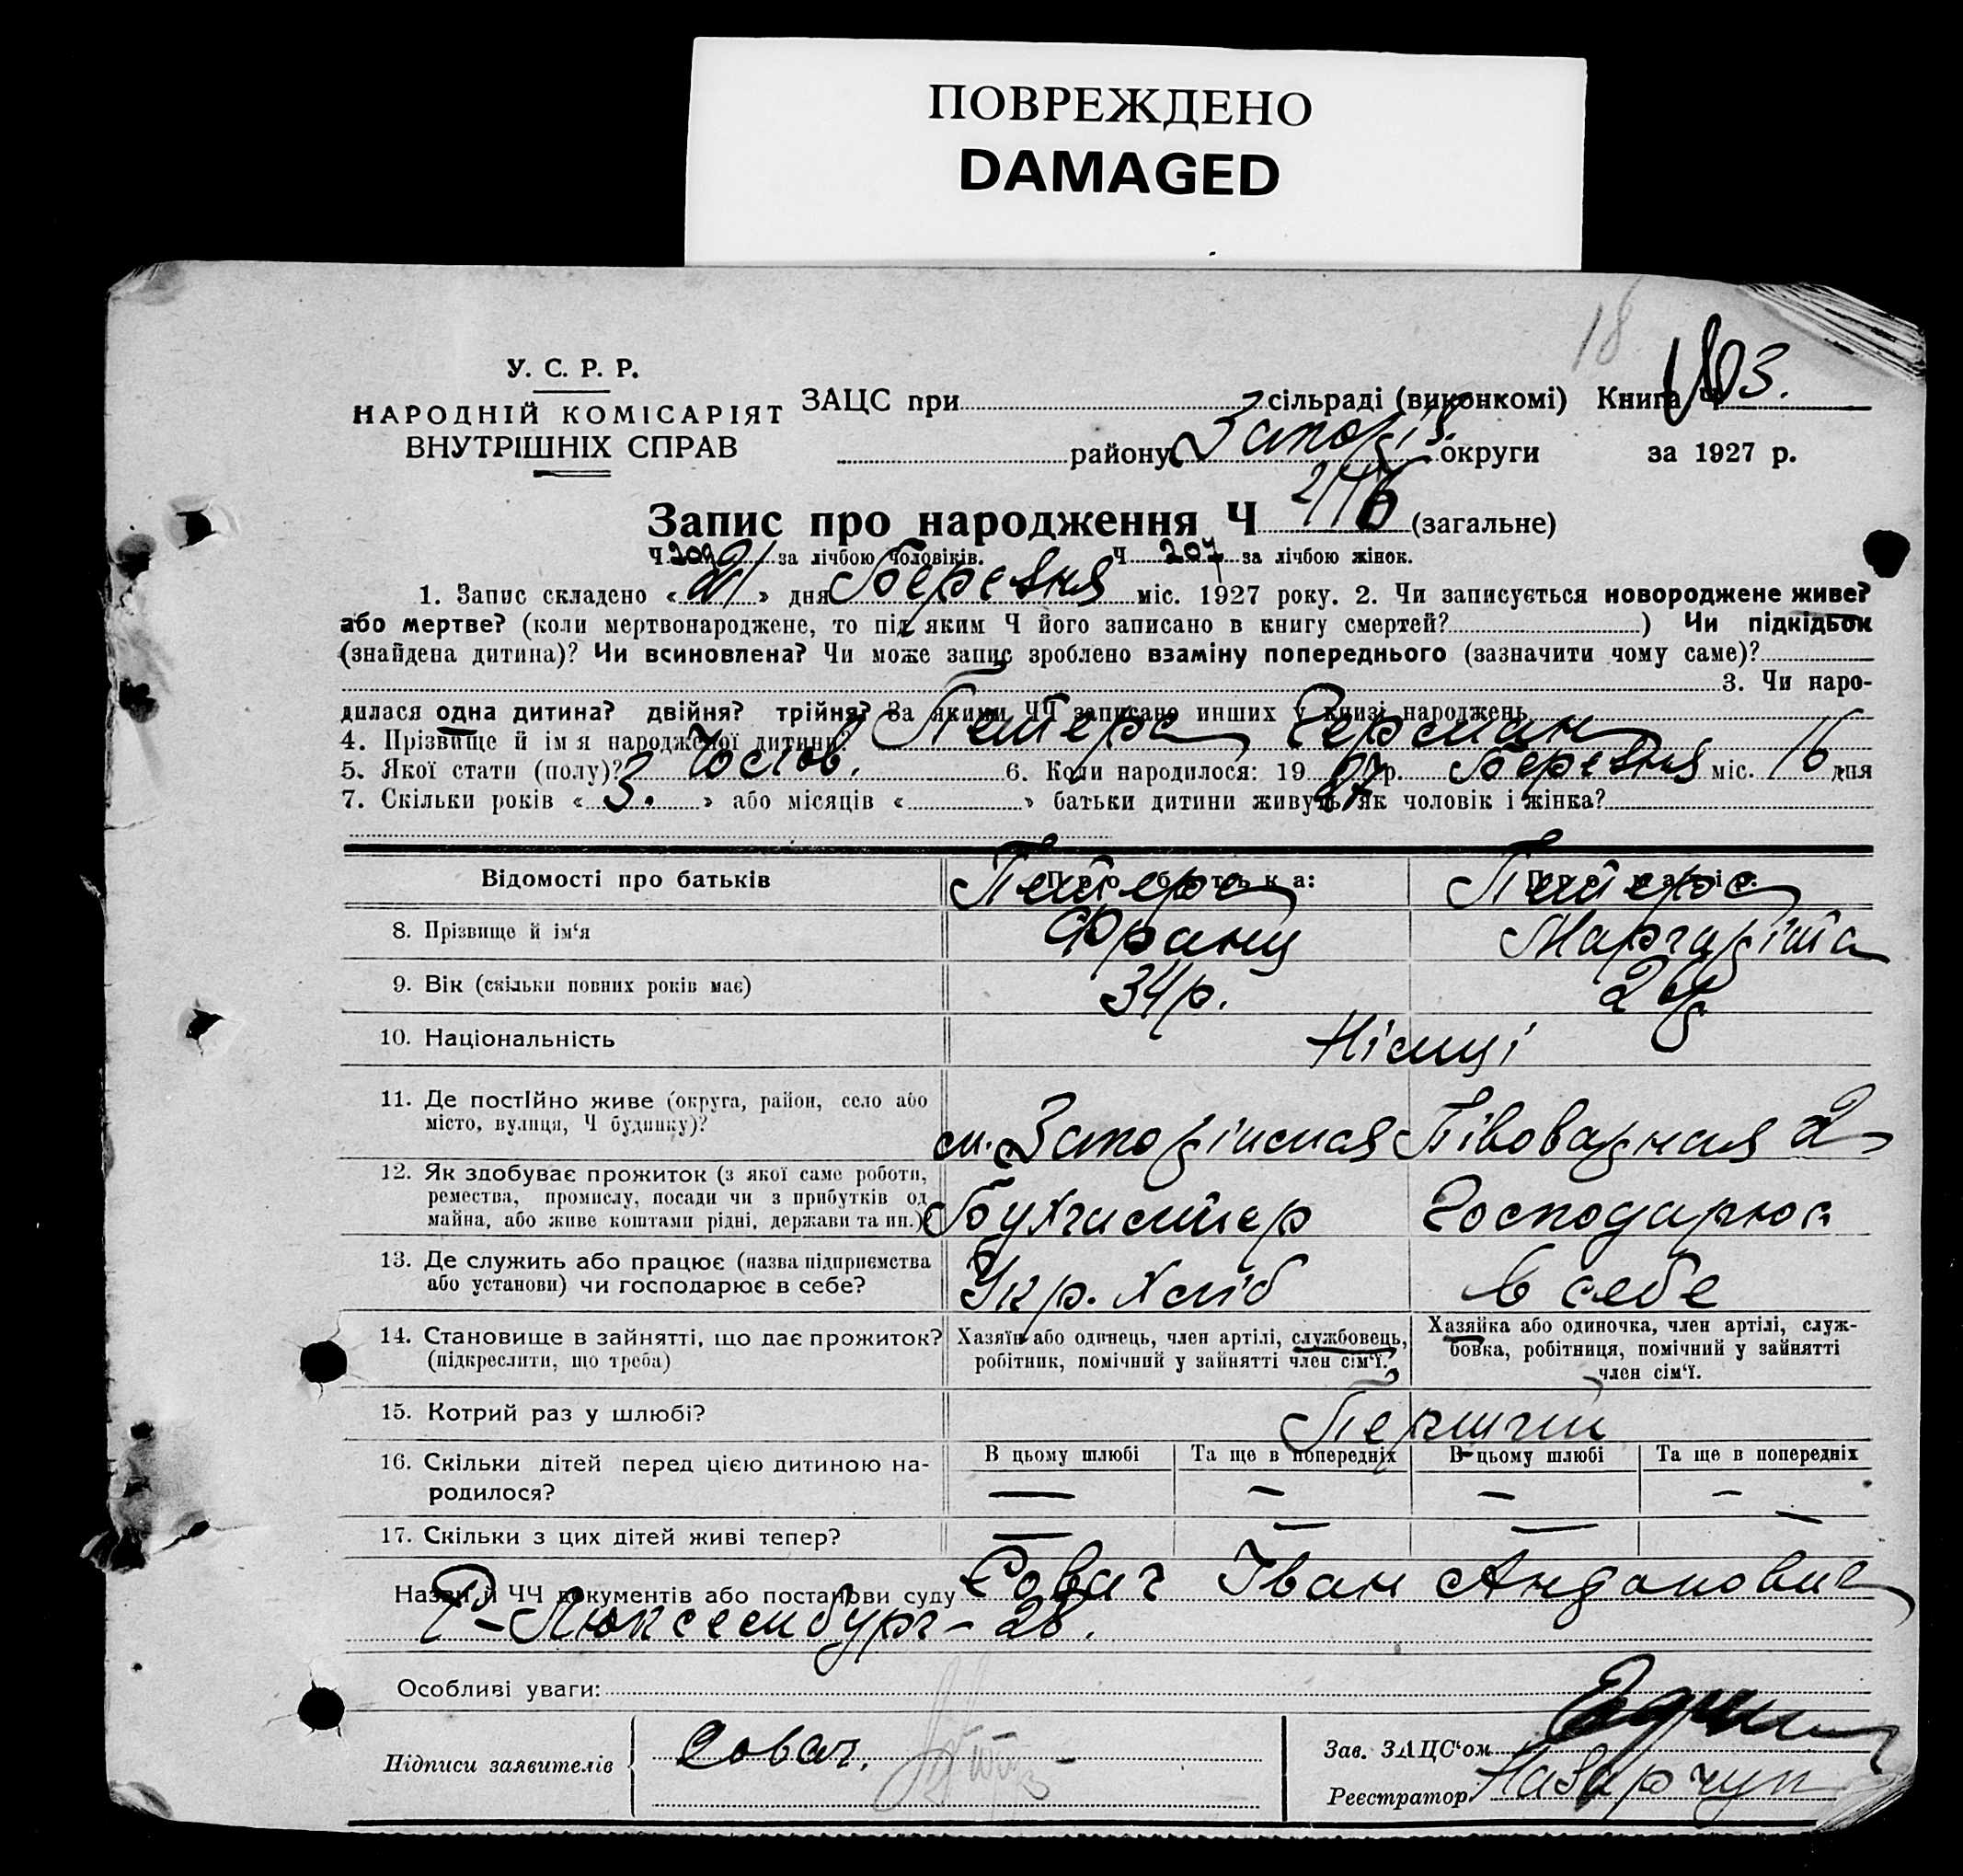 ПОВРЕЖДЕНО
DAMAGED
18
У. С. Р. Р.
НАРОДНІЙ КОМІСАРІЯТ
ВНУТРІШНІХ СПРАВ
ЗАЦС при сільраді (виконкомі) Книга Ч 3.
району Запоріз. округи за 1927 р.
Запис про народження Ч (загальне)
Ч за лічбою чоловіків. Ч 207 за лічбою жінок.
1. Запис складено « 21 » дня Березня міс. 1927 року. 2. Чи записується новороджене живе?
або мертве? (коли мертвонароджене, то під яким Ч його записано в книгу смертей? ) Чи підкідьок
(знайдена дитина)? Чи всиновлена? Чи може запис зроблено взаміну попереднього (зазначити чому саме)?
3. Чи наро-
дилася одна дитина? двійня? трійня? За якими ЧЧ записано инших у книзі народжень
4. Прізвище й ім я народженої дитини? Петерс Герман
5. Якої стати (полу)? Чолов. 6. Коли народилося: 19 27 р. Березня міс. 16 дня
7. Скільки років « 3. » або місяців « » батьки дитини живуть як чоловік і жінка?
Відомості про батьків Про батька: Про матір:
Петерс Петерс
8. Прізвище й ім‘я Франц Маргаріта
9. Вік (скільки повних років має) 34 р.
10. Національність Німці
11. Де постійно живе (округа, район, село або
місто, вулиця, Ч будинку)? м. Запоріжжя Півоварная 2
12. Як здобуває прожиток (з якої саме роботи,
ремества, промислу, посади чи з прибутків од
майна, або живе коштами рідні, держави та ин.) Бухгалтер Господарює
13. Де служить або працює (назва підприємства
або установи) чи господарює в себе? Укр. Хліб в себе
14. Становище в зайнятті, що дає прожиток?
(підкреслити, що треба)
Хазяїн або одинець, член артілі, службовець,
робітник, помічний у зайнятті член сім‘ї.
Хазяйка або одиночка, член артілі, служ-
бовка, робітниця, помічний у зайнятті
член сім‘ї.
15. Котрий раз у шлюбі? Перший
16. Скільки дітей перед цією дитиною на-
родилося?
В цьому шлюбі Та ще в попередніх В цьому шлюбі Та ще в попередніх
— — — —
17. Скільки з цих дітей живі тепер? — — — —
Назви й ЧЧ документів або постанови суду Совач Іван
Р-Люксембург - 28.
Особливі уваги:
Підписи заявителів Совач.
Зав. ЗАЦС‘ом
Реєстратор Назарчук